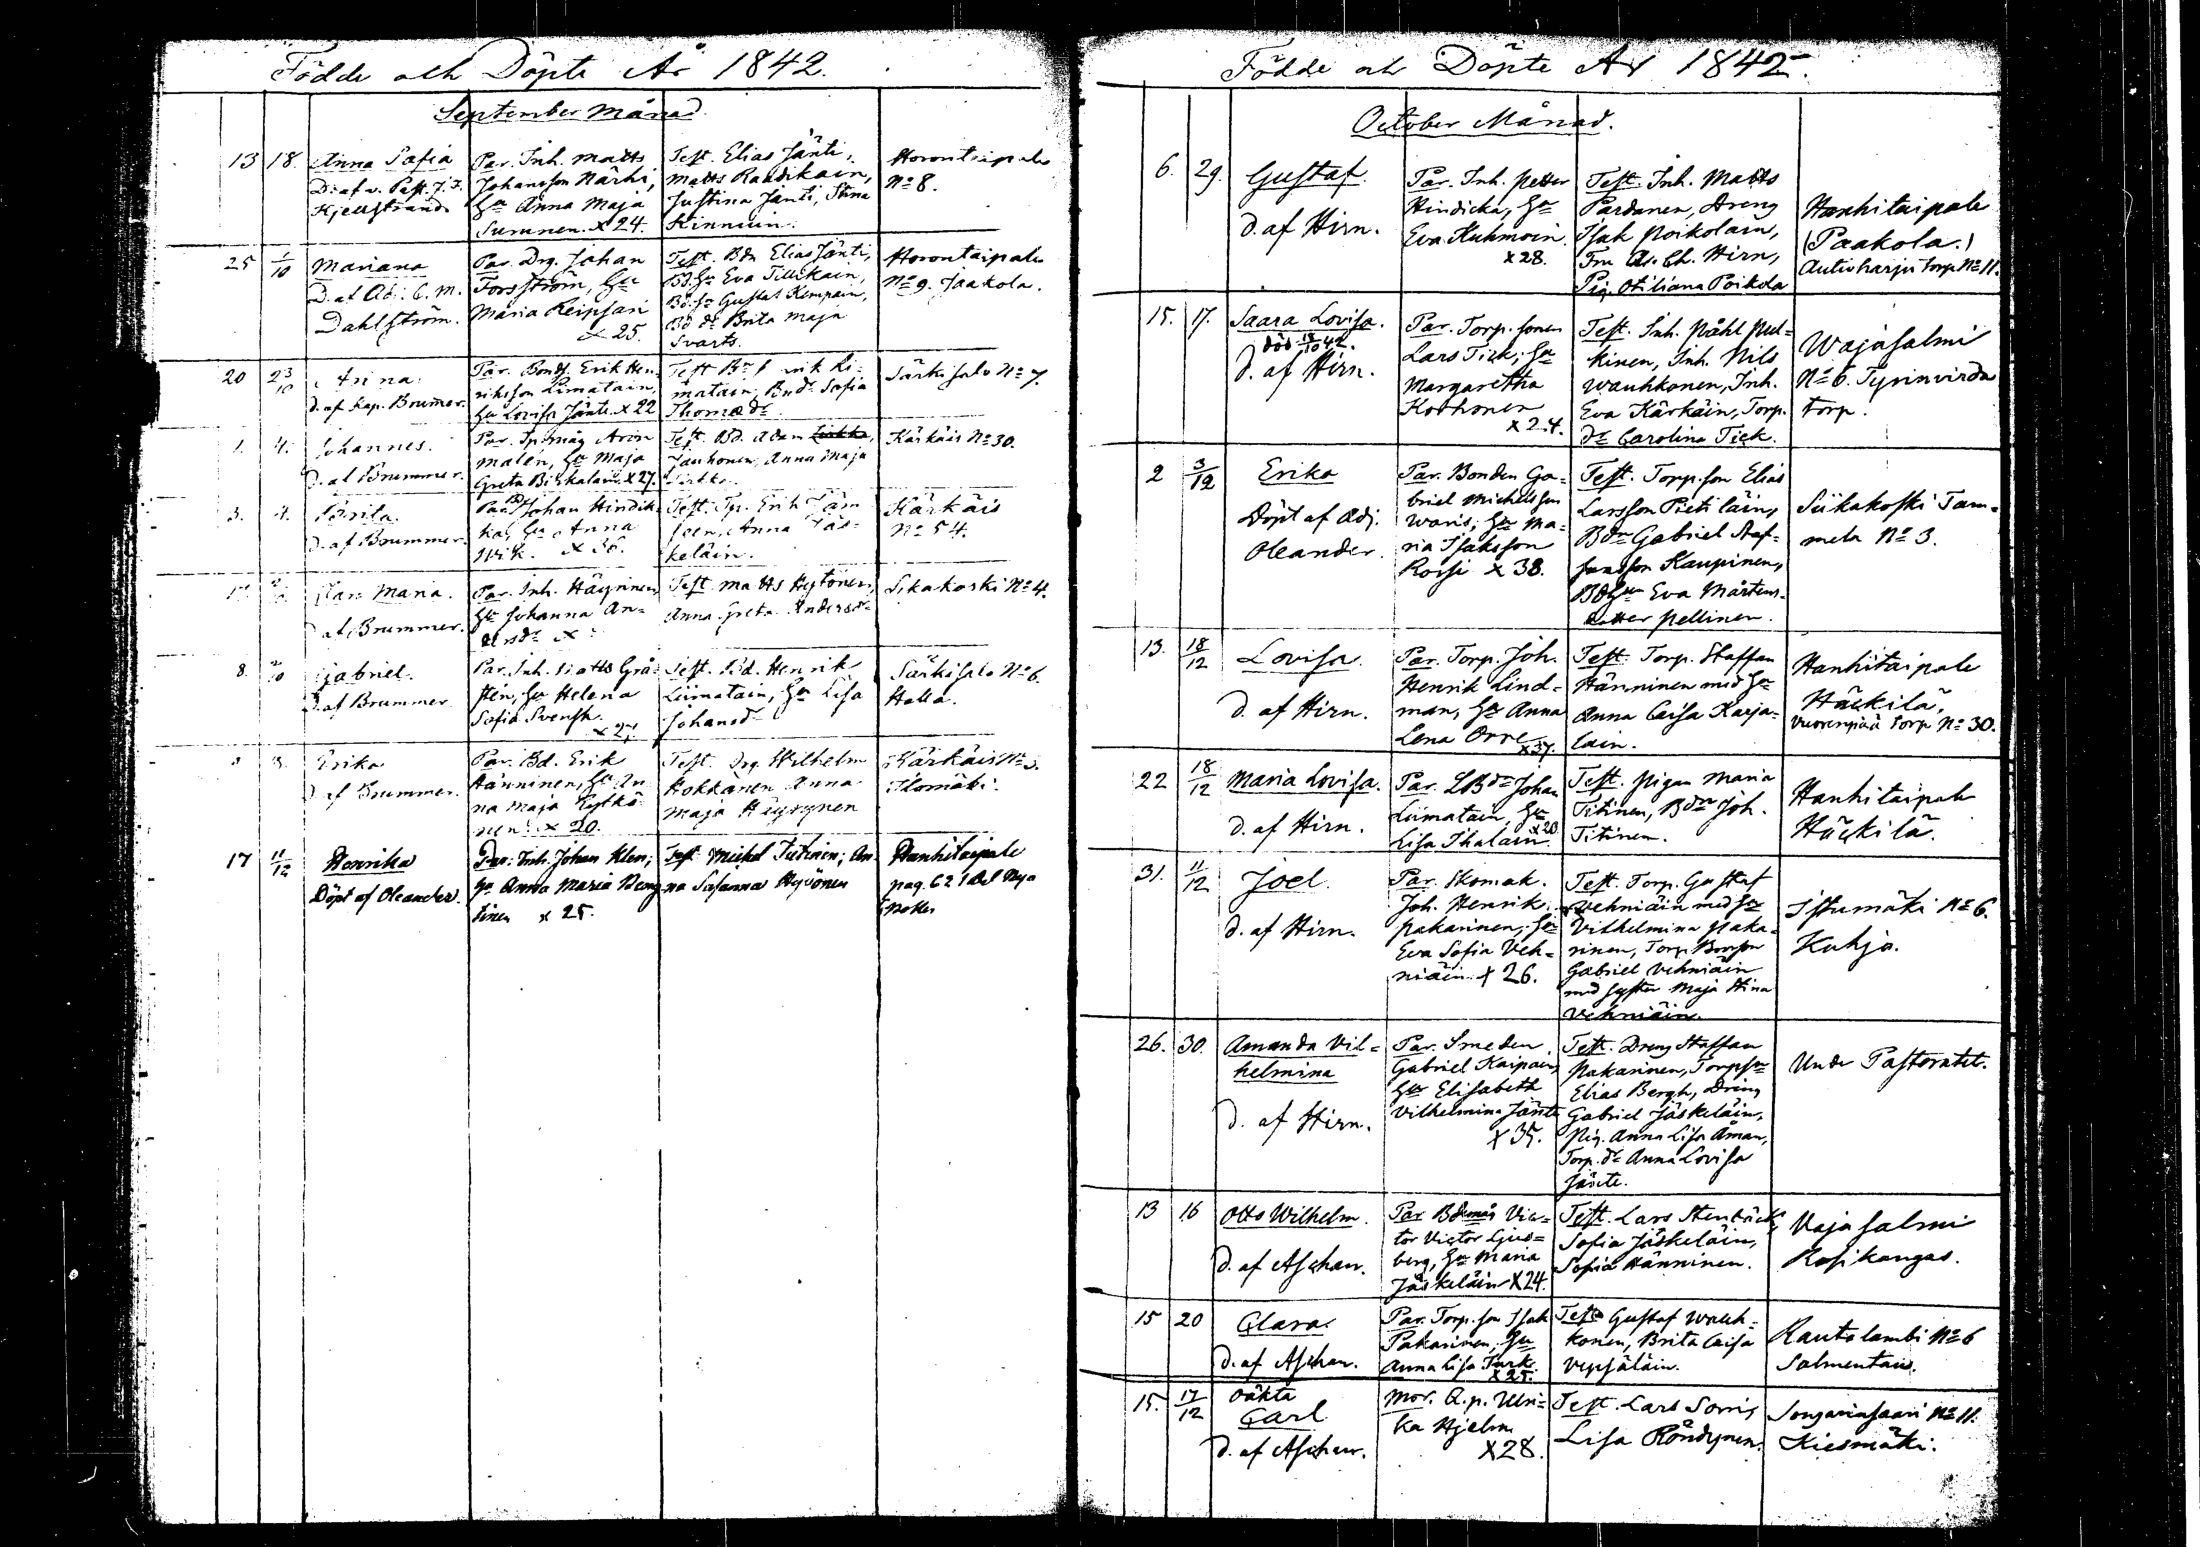 Födde och Döpte År 1842.
September Månad
13 18. Anna Sofia
D. af v. Past. J. F.
Hjellstrand
Par. Inh. Matts
Johansson Närhi,
Hu Anna Maja
Surunen. x 24.
Test. Elias Jänti,
Matts Raudikain,
Justina Jänti, Stina
Kinnuin.
Horontaipale
No 8.
25 1/10 Mariana
D. af Adj. C. M.
Dahlström.
Par. Drg. Johan
Forsström, Hu
Maria Reipsain
x 25.
Test. Bdn Elias Jänti,
Bd. Hu Eva Tillikain,
Bd. Sn Gustaf Kempain,
Bd dr Brita Maja
Svarts.
Horontaipale
No 9. Jaakola.
20 23/10 Anna.
d. af Kap. Brummer.
Par. Bonds. Erik Hen-
riksson Limatain,
Hu Lovisa Jänte x 22
Test Bn Erik Li-
matain, Bndr Sofia
Thomædr
Särkisalo No 7.
1. 4. Johannes.
D. af Brummer.
Par. Sp.måg Aron
Malen, Hu Maja
Greta Pirkalain x 27.
Test. Bd. Adam
Jauhonen, Anna Maja
Kärkäis No 30.
3. 4. Brita.
d. af Brummer.
Par. Bd Johan Hindik-
ka, Hu Anna
x 36.
Test. Tp. Erik
Anna Jäs-
keläin.
Kärkäis
No 54.
Maria.
d. af Brummer.
Par. Inh. Häyrinen
Hu Johanna An-
dersdr x
Test. Matts Hytönen,
Anna Greta Andersdr
Sikakoski No 4.
8. 2/10 Gabriel.
D. af Brummer
Par. Inh. Matts Grå-
stén, Hu Helena
Sofia Svensk.
x 27.
Test. Bd. Henrik
Liimatain, Hu Lisa
Johansdr
Särkisalo No 6.
Halla.
Erika
d. af Brummer.
Par. Bd. Erik
Hänninen, Hu An-
na Maja Kytkö-
nen. x 20.
Test. Drg. Wilhelm
Hokkanen Anna
Maja Häyrynen
Kärkäis No 3.
Ilomäki.
17 11/12 Henrika
Döpt af Oleander.
Par: Inh. Johan Klen;
Hu Anna Maria Peng
tinen x 25.
Test Michel Tiitinen; An-
na Susanna Hyvönen
Hanhitaipale
pag. 621 del Nya
Boken
Födde och Döpte År 1842.
October Månad.
6. 29. Gustaf.
d. af Hirn.
Par. Inh. Petter
Hindicka, Hu
Eva Kuhmoin.
x 28.
Test. Inh. Matts
Pardanen, Dreng
Isak Poikolain,
Fru Ch. Hirn,
Pig. Otiliana Poikola
Hanhitaipale
(Paakola.)
Autioharju torp No 11.
15. 17. Saara Lovisa.
död 18/10 42.
d. af Hirn.
Par. Torp. sonen
Lars Tick, Hu
Margaretha
Korhonen
x 24.
Test. Inh. Påhl Pul-
kinen, Inh. Nils
Wauhkonen, Inh.
Eva Kärkäin, Torp.
dr Carolina Tick.
Wajasalmi
No 6. Tyrinvirda
torp.
2 3/12 Erika
Döpt af Adj.
Oleander.
Par. Bonden Ga-
briel Michelsson
Waris, Hu Ma-
ria Isaksson
Rossi x 38.
Test. Torp. son Elias
Larsson Pietiläin,
Bdn Gabriel Staf-
fansson Kaupinen,
Bd Hu Eva Mårtens-
dotter Pellinen.
Siikakoski Tam-
mela No 3.
13. 18/12 Lovisa.
d. af Hirn.
Par. Torp. Joh.
Henrik Lind-
man, Hu Anna
Lena Orre
x 37.
Test. Torp. Staffan
Hänninen med Hu
Anna Caisa Karja-
lain.
Hanhitaipale
Häckilä,
Vuorenpää torp No 30.
22 18/12 Maria Lovisa.
d. af Hirn.
Par. LBdn Johan
Liimatain, Hu
x 20
Lisa Ihalain
Test. Pigan Maria
Titinen, Bdn Joh.
Titinen.
Hanhitaipale
Häckilä.
31. 11/12 Joel.
d. af Hirn.
Par. Skomak.
Joh. Henrik
Pakarinen, Hu
Eva Sofia Veh-
niäin x 26.
Test. Torp. Gustaf
Vehniäin med Hu
Vilhelmina Paka-
rinen, Torp. Bonson
Gabriel Vehniäin
med syster Maja Stina
Vehniäin.
Istumäki No 6.
Kuhja.
26. 30. Amanda Vil-
helmina
d. af Hirn.
Par. Smeden
Gabriel Kaipain,
Hu Elisabeth
Vilhelmina Jänte
x 35.
Test. Dreng Staffan
Pakarinen, Torpsn
Elias Bergh, Dreng
Gabriel Jäskeläin,
Pig. Anna Lisa Åman,
Torp. dr Anna Lovisa
Jänte.
Under Pastoratet.
13 16 Otto Wilhelm.
d. af Aschan.
Par Bdemåg Vic-
tor Victor Ljus-
berg, Hu Maria
Jäskeläin x 24.
Test. Lars Stenbäck,
Sofia Jäskeläin,
Sofia Hänninen.
Vajasalmi
Rosikangas.
15 20 Clara.
d. af Aschan.
Par. Torp. son Isak
Pakarinen, Hu
Anna Lisa Turk.
x 25.
Test Gustaf Wauh-
konen, Brita Caisa
Vepsäläin.
Rautalambi No 6
Salmentaus.
15. 17/12 oäkta
Carl
d. af Aschan.
Mor. Q.p. Ulri-
ka Hjelm
x 28.
Test. Lars Sorri,
Lisa Röndynen.
Songarinsaari No 11.
Kiesimäki.